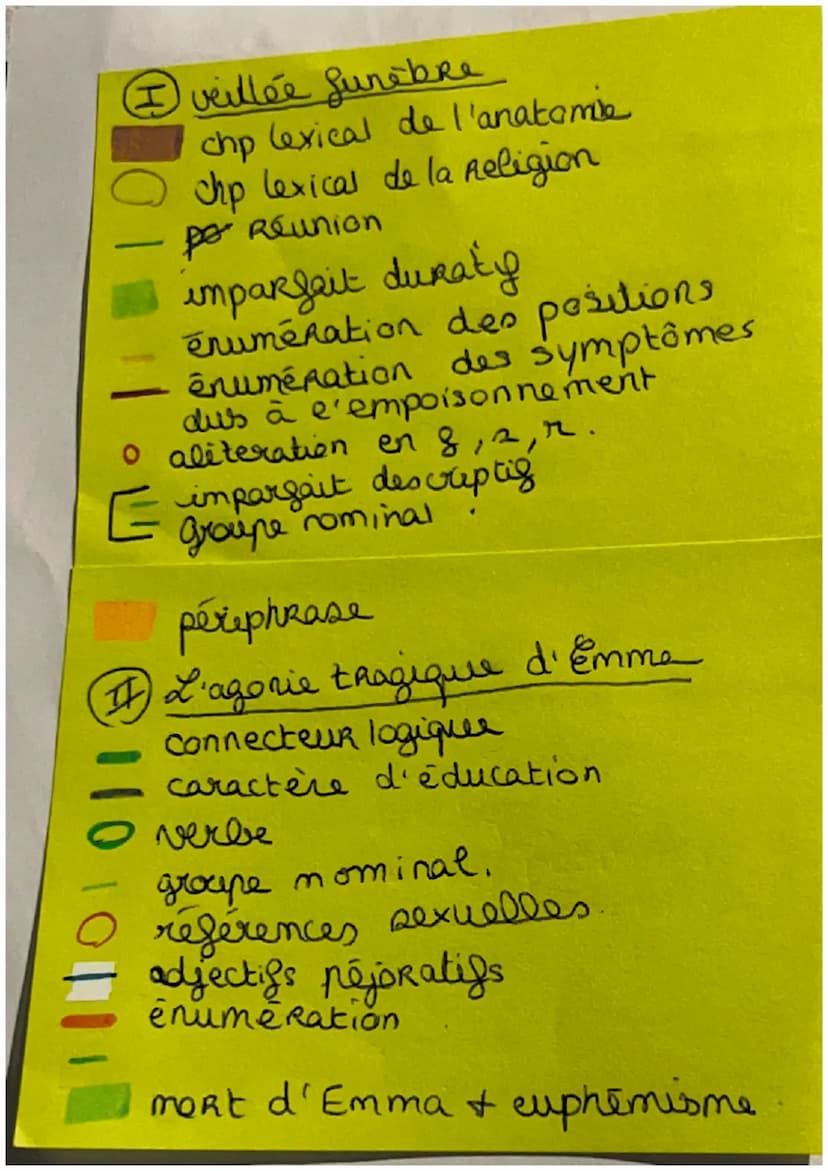 I veillée funèbre
chp lexical de l'anatomie
chp lexical de la Religion
Réunion
imparfait duratif
énumération des positions
énumération des symptômes
dus à l'empoisonnement
alitération en f, s, r.
imparfait descriptif
Groupe nominal.
périphrase
II L'agonie tragique d'Emma
connecteur logique
caractère d'éducation
verbe
groupe nominal.
références sexuelles.
adjectifs péjoratifs
énumération
mort d'Emma + euphémisme.